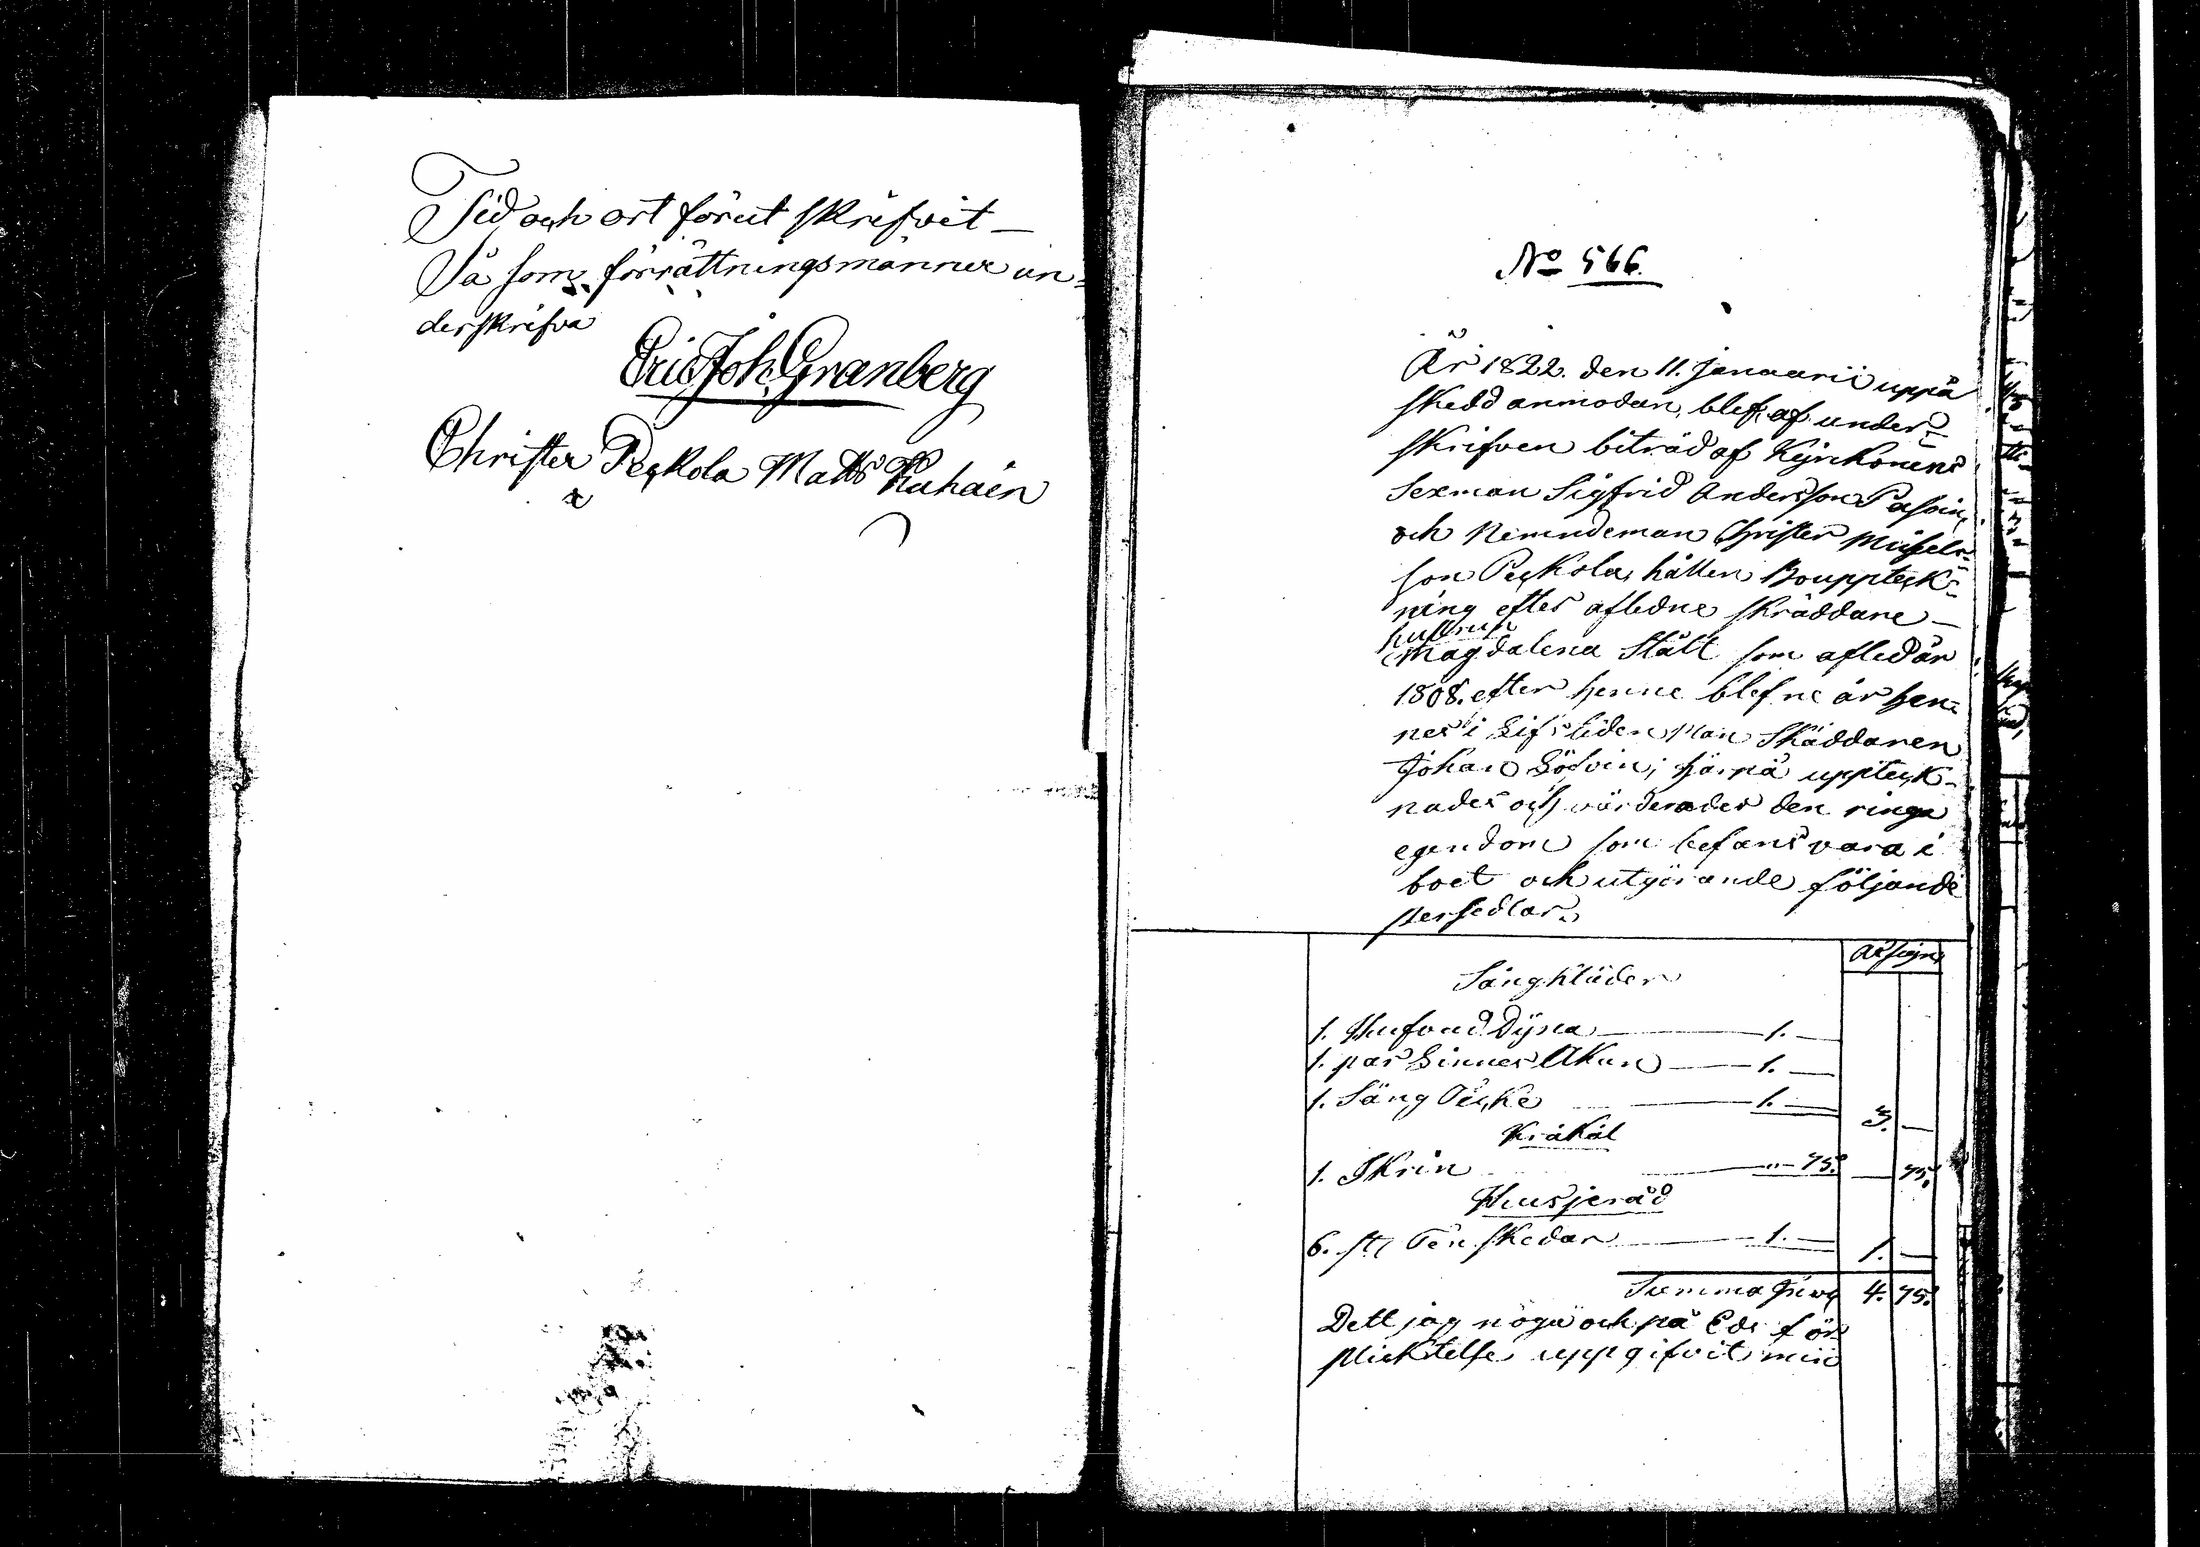 Tid och ort förut skrifvit —
Så som förrättningsmänner un=
derskrifva
Eric Joh. Granberg
Christer Peckola Matts Kuhain
N° 566.
År 1822. den 11. Januarii uppå
skedd anmodan, blef af under=
skrifven biträd af Kyrkones
Sexman Sigfrid Andersson
och Nemndeman Christer Michels=
son Peckola, hållen Bouppteck=
ning efter afledne skräddare —
hustrun
Magdalena Stålt som afled år
1808. efter henne blefne är hen=
nes i Lifstiden Man Skäddaren
Johan Löfvin; härpå uppteck=
nades och värderades den ringa
egendom som befans vara i
boet och utgörande följande
persedlar.
Sängkläder
1. Hufvud Dÿna — 1. —
1. par Linnes Lakan — 1. —
1. Säng Täcke — 1. — 3. —
Kräkäl
1. Skrin — " — 75. — 75.
Husjeråd
6. st. Ten skedar — 1. — 1. —
Summa 4. 75.
Dett jag noga och på Eds för
plicktelse uppgifvit min